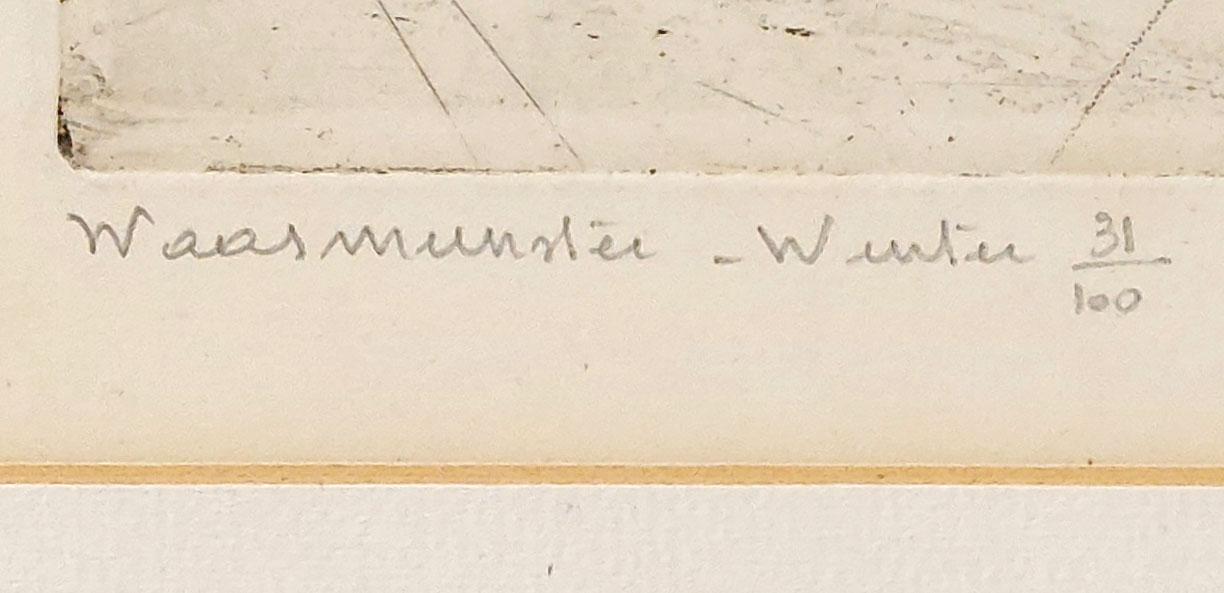 Waasmunster - Winter 31/100